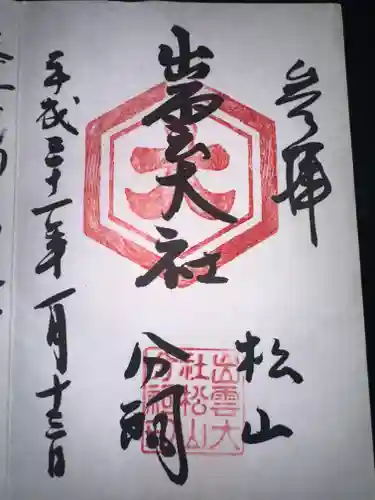 参拝
出雲大社
松山
分祠
平成三十一年一月十三日
大
出雲大
社松山
分祠